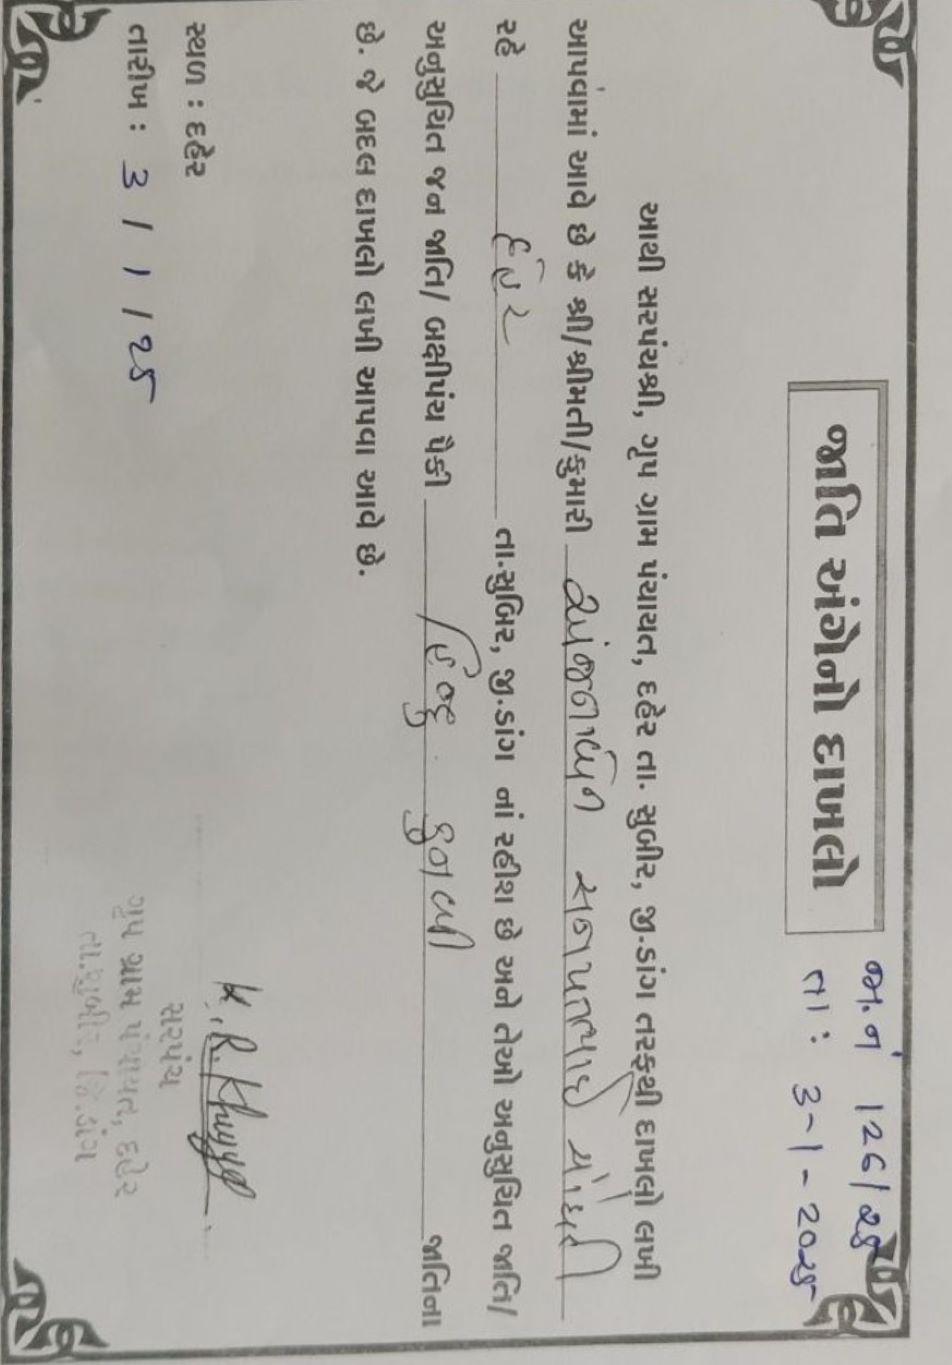 જા.નં 126/25
તા: 3-1-2025
જાતિ અંગેનો દાખલો
આથી સરપંચશ્રી, ગૃપ ગ્રામ પંચાયત, દહેર તા. સુબીર, જી.ડાંગ તરફથી દાખલો લખી
આપવામાં આવે છે કે શ્રી/શ્રીમતી/કુમારી
રહે દહેર તા.સુબિર, જી.ડાંગ નાં રહીશ છે અને તેઓ અનુસુચિત જાતિ/
અનુસુચિત જન જાતિ/ બક્ષીપંચ પૈકી હિન્દુ કુનબી જાતિના
છે. જે બદલ દાખલો લખી આપવા આવે છે.
સ્થળ : દહેર
તારીખ : 3 / 1 / 25
સરપંચ
ગૃપ ગ્રામ પંચાયત, દહેર
તા.સુબીર, જિ.ડાંગ